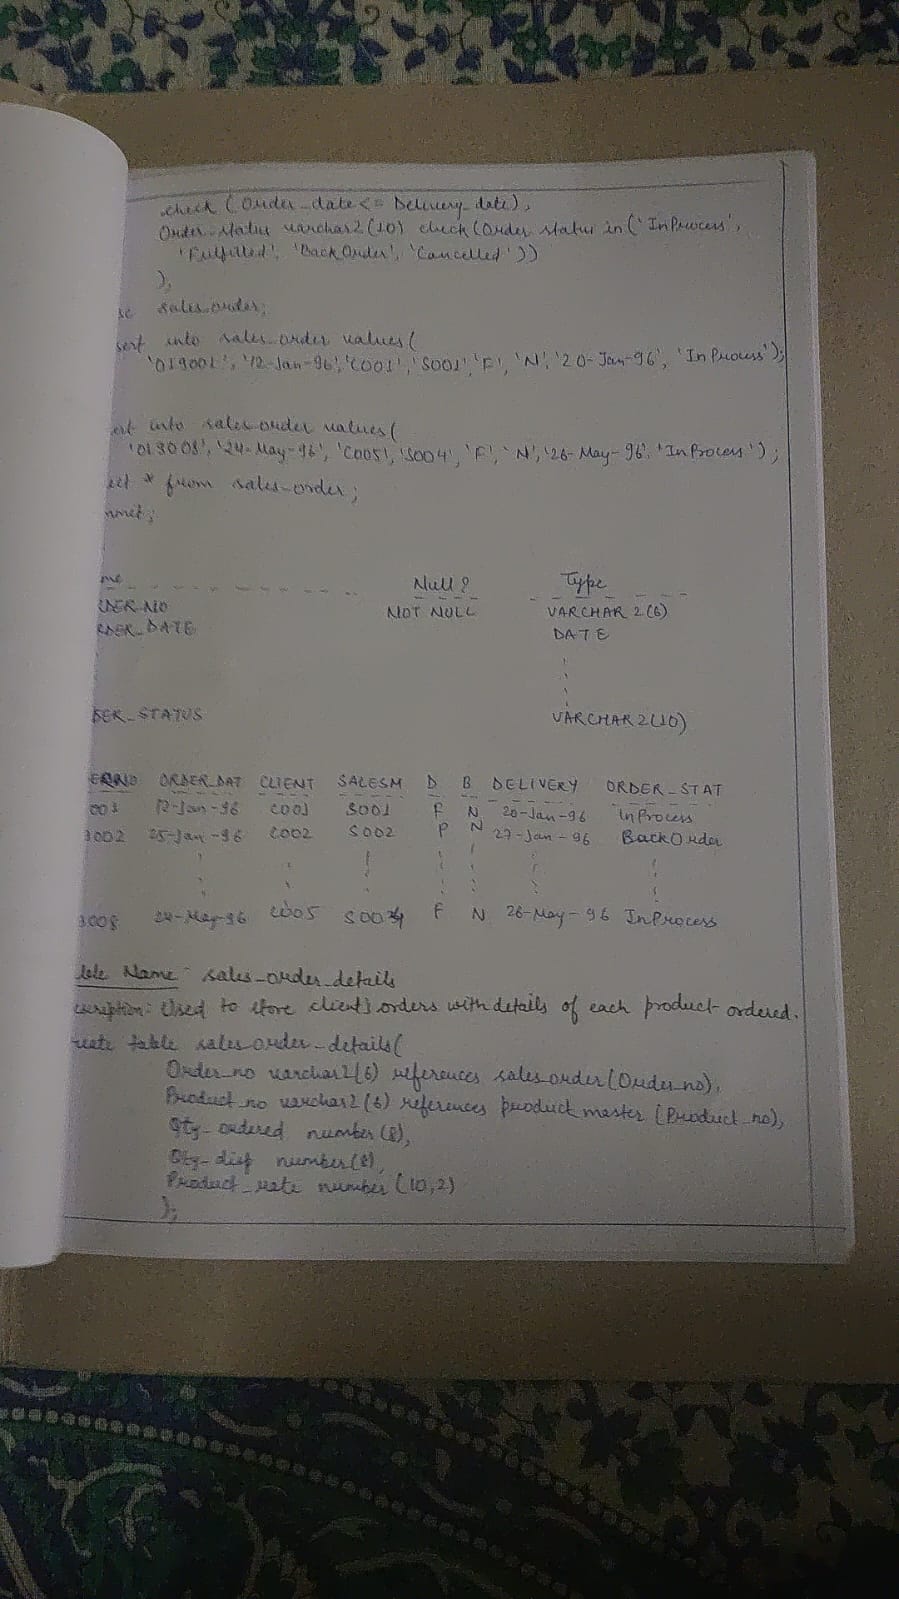 check (Order_date <= Delivery_date),
Order_status varchar2(10) check (Order_status in ('InProcess',
'Fulfilled', 'BackOrder', 'Cancelled'))
);
sc sales_order;
sert into sales_order values(
'019001', '12-Jan-96', 'C001', 'S001', 'F', 'N', '20-Jan-96', 'InProcess');
ert into sales_order values(
'24-May-96', 'C005', 'S004', 'F', 'N', '26-May-96', 'InProcess');
ect * from sales_order;
mmit;
me Null? Type
RDER_NO NOT NULL VARCHAR2(6)
RDER_DATE DATE
DER_STATUS VARCHAR2(10)
ORDER_DAT CLIENT SALESM D B DELIVERY ORDER_STAT
001 12-Jan-96 C001 S001 F N 20-Jan-96 InProcess
9002 25-Jan-96 C002 S002 P N 27-Jan-96 BackOrder
24-May-96 C005 F N 26-May-96 InProcess
ble Name: sales_order_details
escription: Used to store client's orders with details of each product ordered.
reate table sales_order_details(
Order_no varchar2(6) references sales_order(Order_no),
Product_no varchar2(6) references product_master (Product_no),
Qty_ordered number(8),
Qty_disp number(8),
Product_rate number(10,2)
);